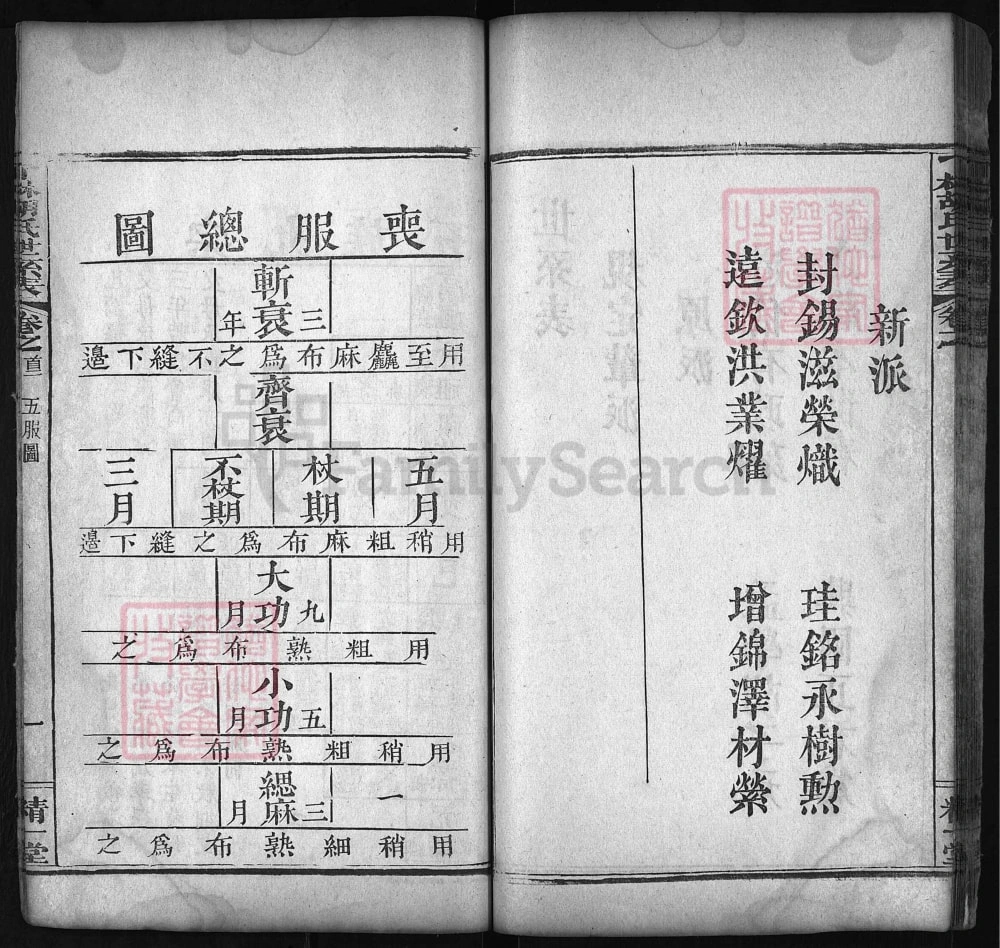 新派
封錫滋榮熾　珪銘永樹勲
遠欽洪業燿　增錦澤材縈
胡氏世系表
卷之首
五服圖
一
精一堂
喪服總圖
斬衰三年
用至麤麻布為之不縫下邉
齊衰
五月
杖期
不杖期
三月
用稍粗麻布為之縫下邉
大功九月
用粗熟布為之
小功五月
用稍粗熟布為之
緦麻三月
用稍細熟布為之
FamilySearch